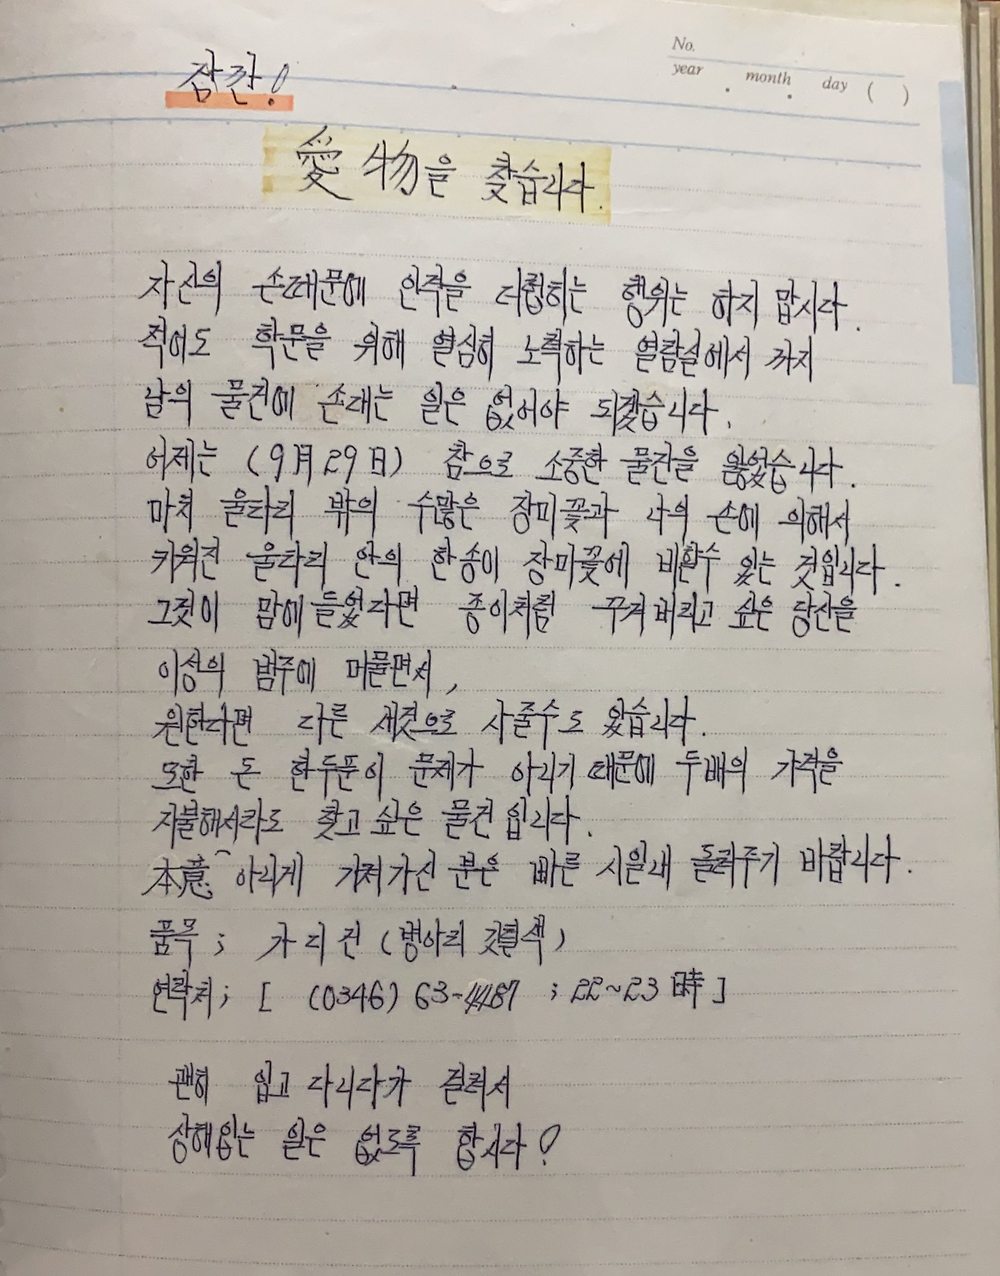 No.
year . month . day ( )
잠깐!
愛物을 찾습니다.
자신의 손때문에 인격을 더럽히는 행위는 하지 맙시다.
적어도 학문을 위해 열심히 노력하는 열람실에서 까지
남의 물건에 손대는 일은 없어야 되겠습니다.
어제는 (9月 29日) 참으로 소중한 물건을 잃었습니다.
마치 울타리 밖의 수많은 장미꽃과 나의 손에 의해서
키워진 울타리 안의 한송이 장미꽃에 비할수 있는 것입니다.
그것이 맘에들었다면 종이처럼 꾸겨버리고 싶은 당신을
이성의 범주에 머물면서,
원한다면 다른 새것으로 사줄수도 있습니다.
또한 돈 한두푼이 문제가 아니기 때문에 두배의 가격을
지불해서라도 찾고 싶은 물건 입니다.
本意 아니게 가져가신 분은 빠른 시일내 돌려주기 바랍니다.
품목 ; 가디건 (병아리 깃털색)
연락처 ; [ (0346) 63-4487 ; 22~23時 ]
괜히 입고 다니다가 걸려서
상해입는 일은 없도록 합시다!